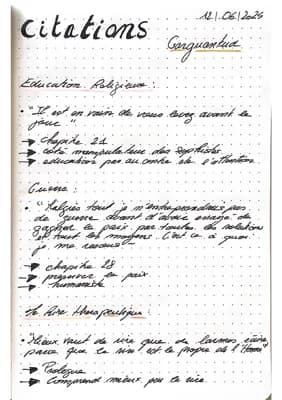 Citations
12/06/2024
Garguantua
Education Religieuse :
• "Il est en vain de vous levez avant le
jour"
→ chapitre 21
→ côté manipulateur des sophistes
→ education pas au centre de l'attention
Guerre :
• "Malgrés tout je n'entreprendrais pas
de guerre avant d'avoir essayé de
gagner la paix par toutes les solutions
et tout les moyens. C'est ce à quoi
je me résous"
→ chapitre 28
→ la paix
→ humaniste
le Rire therapeutique
• "Mieux vaut de rire que de larmes écrire
parce que le rire est le propre de l'Homme"
→ Prologue
→ Comprend mieux par le rire